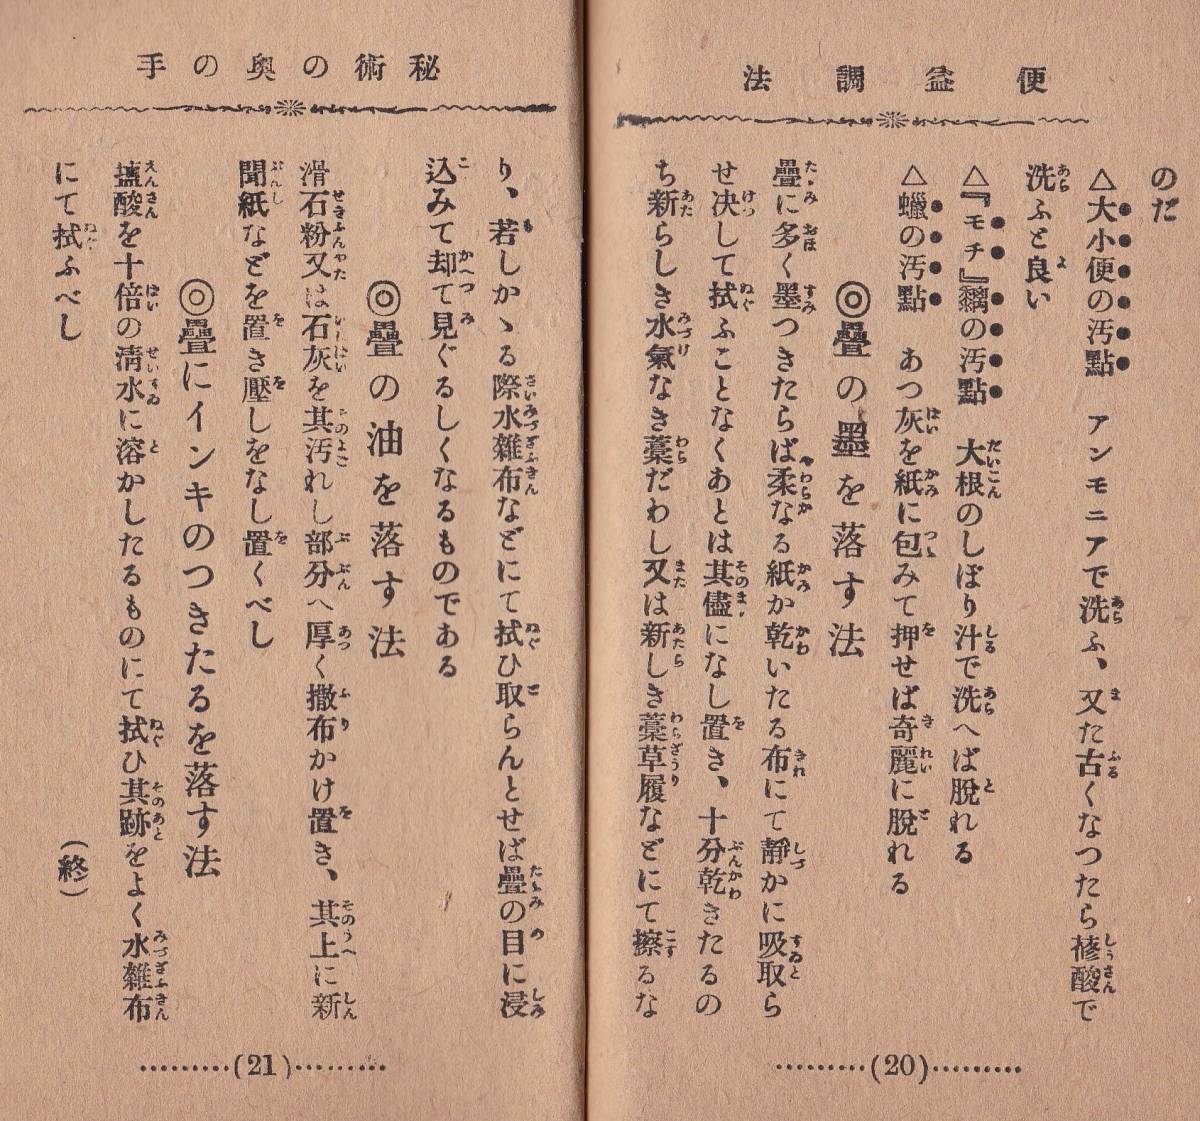 便益調法
のだ
△大小便の汚點　アンモニアで洗ふ、又た古くなつたら蓚酸で
洗ふと良い
△『モチ』黐の汚點　大根のしぼり汁で洗へば脫れる
△蠟の汚點　あつ灰を紙に包みて押せば奇麗に脫れる
◎疊の墨を落す法
疊に多く墨つきたらば柔なる紙か乾いたる布にて靜かに吸取ら
せ決して拭ふことなくあとは其儘になし置き、十分乾きたるの
ち新らしき水氣なき藁だわし又は新しき藁草履などにて擦るな
……(20)……
秘術の奥の手
り、若しかゝる際水雜布などにて拭ひ取らんとせば疊の目に浸
込みて却て見ぐるしくなるものである
◎疊の油を落す法
滑石粉又は石灰を其汚れし部分へ厚く撒布かけ置き、其上に新
聞紙などを置き壓しをなし置くべし
◎疊にインキのつきたるを落す法
鹽酸を十倍の淸水に溶かしたるものにて拭ひ其跡をよく水雜布
にて拭ふべし
（終）
……(21)……